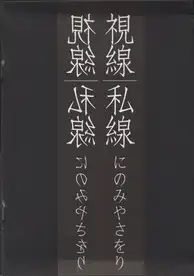 視線|私線 にのみやさをり
視線|私線 にのみやさをり